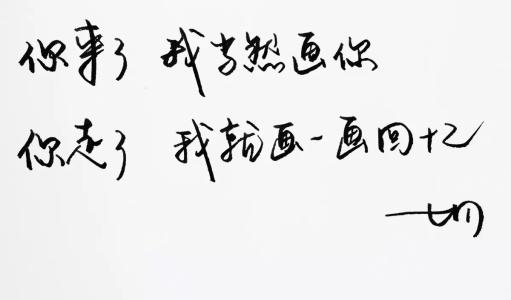 你来了 我当然画你
你走了 我就画一画回忆
一切